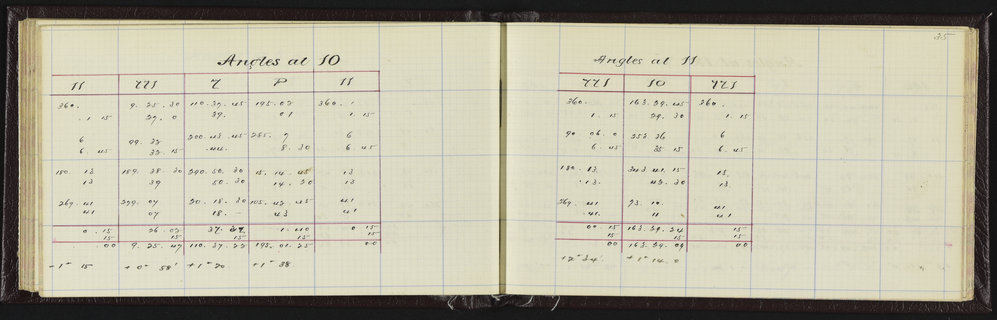 35
Angles at 10
11 | 771 | 7 | P | 11
360. | 9. 25. 30 | 110. 37. 45 | 195. 02 | 360. 1
.1 15 | 27. 0 | 37. | 01 | 1. 15
6 | 99. 32 | 200. 43. 45 | 285. 7 | 6
6. 45 | 32. 15 | .44. | 8. 30 | 6. 45
180. 13 | 189. 38. 30 | 290. 50. 30 | 15. 14. 45 | 13
13 | 39 | 50. 30 | 14. 30 | 13
269. 41 | 279. 07 | 20. 18. 30 | 105. 42. 45 | 41
41 | 07 | 18. - | 43 | 41
0. 15 | 26. 02 | 37. 37 | 1. 40 | 0 15
15 | 15 | 15 | 15 | 15
.00 | 9. 25. 47 | 110. 37. 22 | 195. 01. 25 | 00
-1" 15 | +0" 58' | +1" 20 | +1" 38
Angles at 11
771 | 10 | 771
360. | 163. 29. 45 | 360.
1. 15 | 29. 30 | 1. 15
90 06. 0 | 253. 36 | 6
6. 45 | 35 15 | 6. 45
180. 13. | 343. 41. 15 | 13.
.13. | 42. 30 | 13.
269. 41 | 73. 10. | 41.
.41. | 11 | 41
00. 15 | 163. 29. 24 | 15
15 | 15 | 15
00 | 163. 29. 09 | 00
+2" 34' | +1" 14. 0